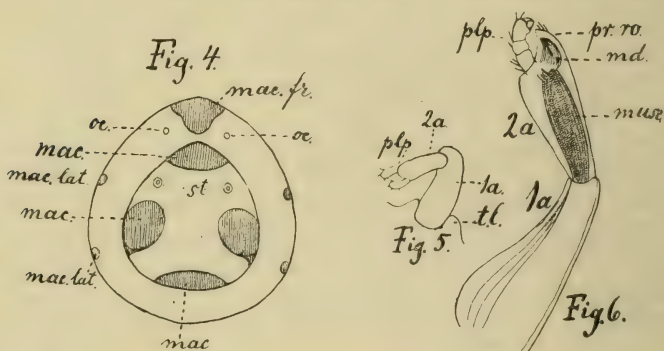 Fig. 4.
mac. fr.
oc.
oc.
mac.
mac. lat.
st
mac.
mac. lat.
mac
plp.
2a
1a.
t.l.
Fig. 5.
plp.
pr. ro.
md.
musc.
2a
1a
Fig. 6.